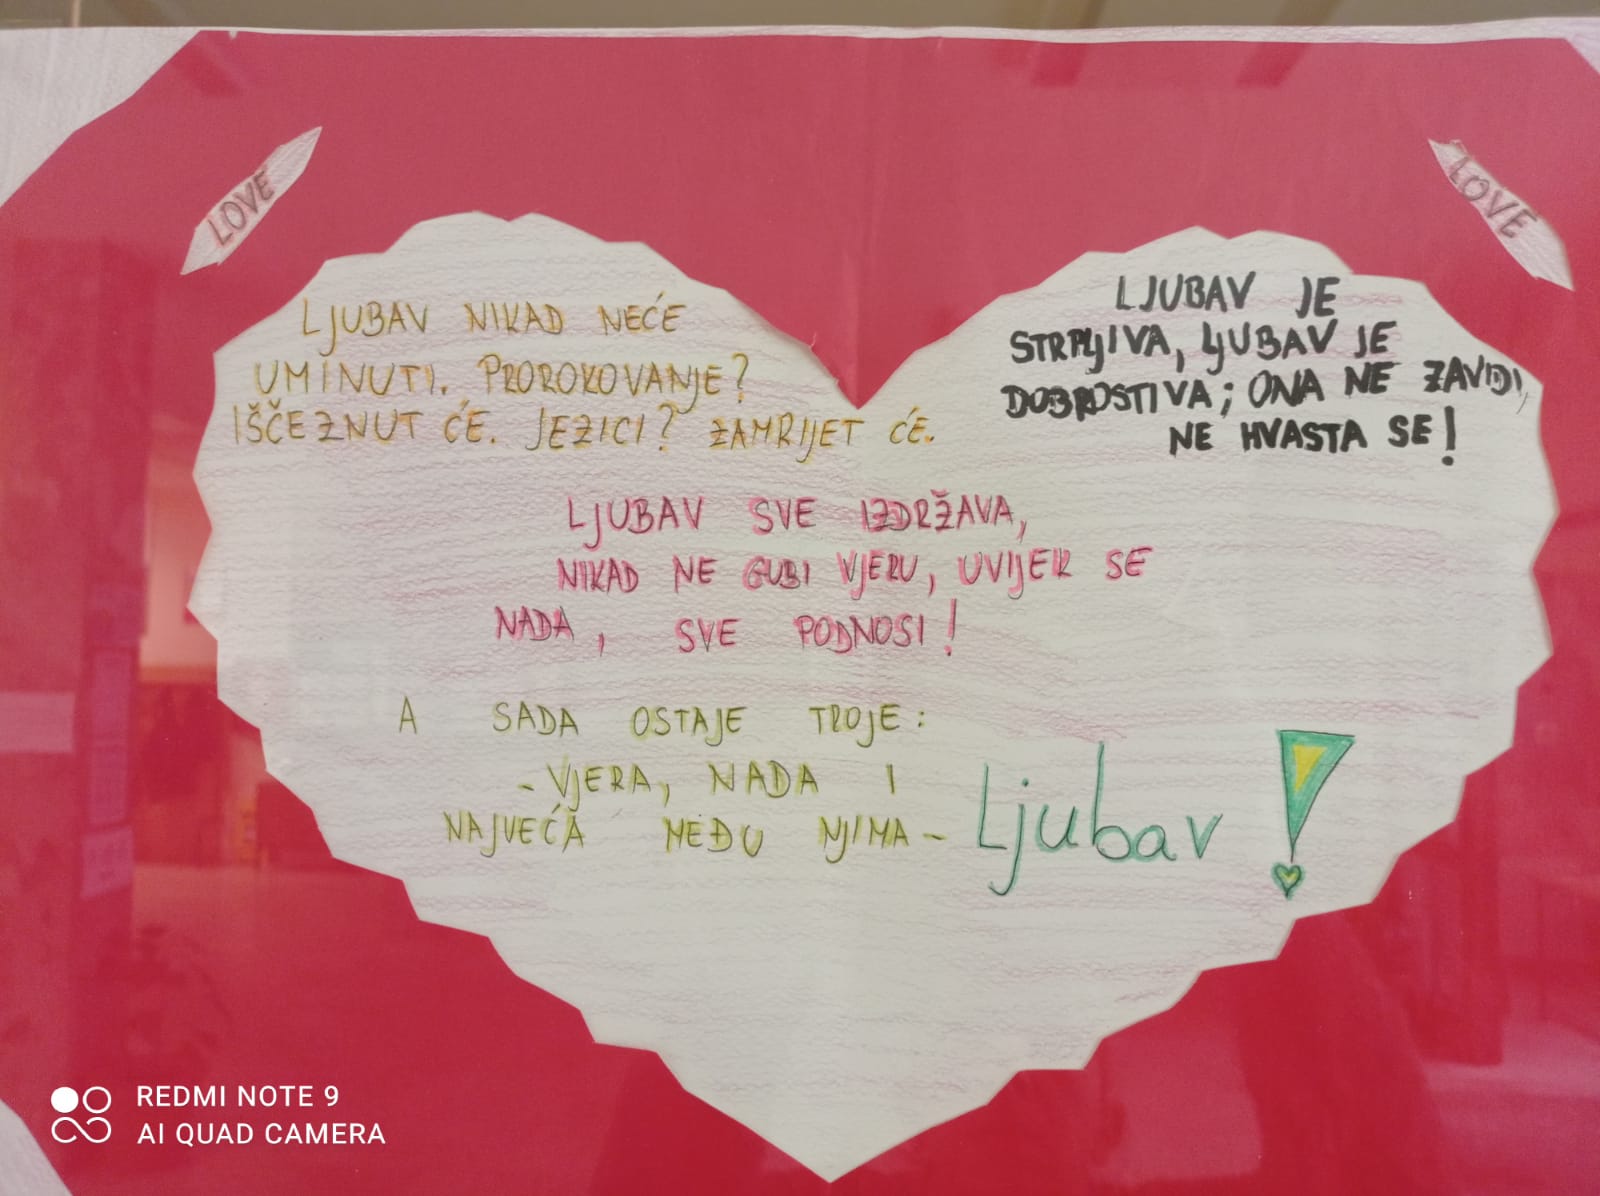 LOVE
LOVE
LJUBAV NIKAD NEĆE
UMINUTI. PROROKOVANJE?
IŠČEZNUT ĆE. JEZICI? ZAMRIJET ĆE.
LJUBAV JE
STRPLJIVA, LJUBAV JE
DOBROSTIVA; ONA NE ZAVIDI,
NE HVASTA SE!
LJUBAV SVE IZDRŽAVA,
NIKAD NE GUBI VJERU, UVIJEK SE
NADA, SVE PODNOSI!
A SADA OSTAJE TROJE:
- VJERA, NADA I
NAJVEĆA MEĐU NJIMA - Ljubav!
REDMI NOTE 9
AI QUAD CAMERA